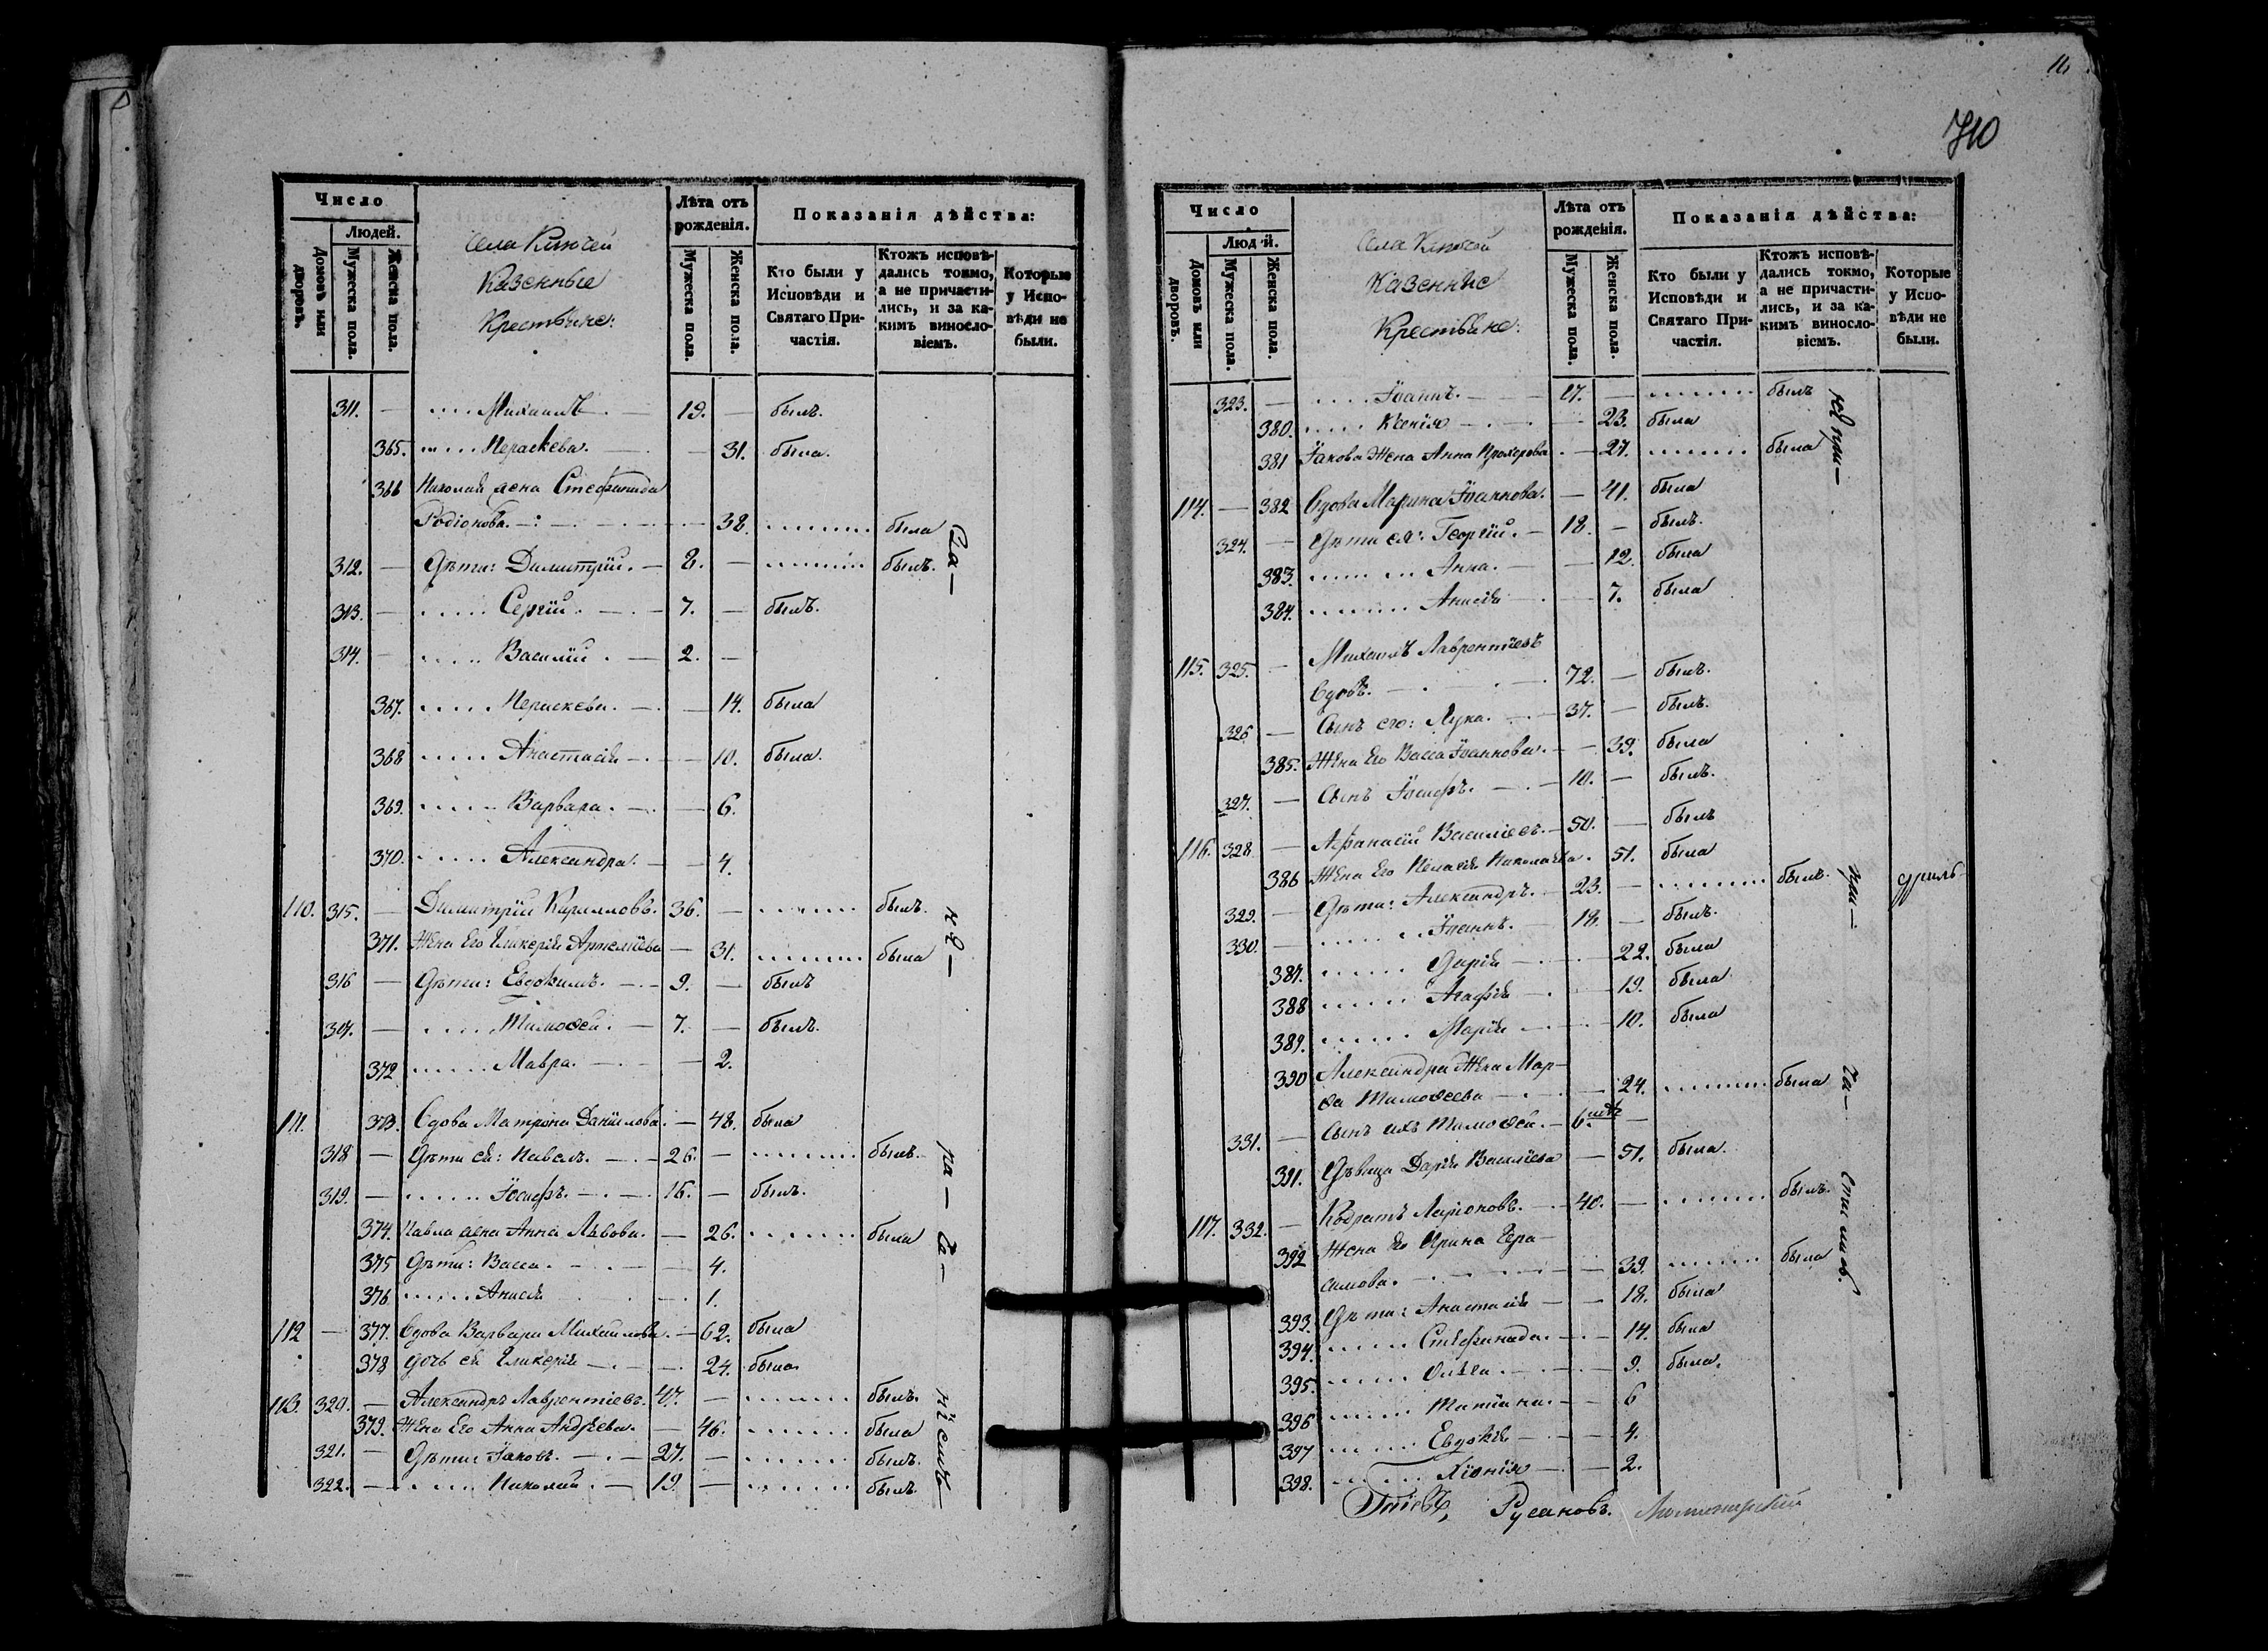 16
710
Число
Людей.
Домовъ или дворовъ.
Мужеска пола.
Женска пола.
Села Ключей
Казенные
Крестьяне:
Лѣта отъ рожденія.
Мужеска пола.
Женска пола.
Показанія дѣйства:
Кто были у Исповѣди и Святаго Причастія.
Ктожъ исповѣдались токмо, а не причастились, и за какимъ винословіемъ.
Которые у Исповѣди не были.
311. — ..... Михаилъ. — 19. — былъ.
365. ..... Параскева. — — 31. была.
366 Николая жена Стефанида
Родіонова. — 38. ......... была
312. — Дѣти: Димитрій. — 8. — ......... былъ.
313. — ..... Сергій. — 7. — былъ.
314. — ..... Василій. — 2. —
367. ..... Параскева. — — 14. была
368 ..... Анастасія — — 10. была.
369. ..... Варвара. — — 6.
370. ..... Александра. — — 4.
110. 315. — Димитрій Кирилловъ. 36. — ......... былъ.
371. Жена Его Гликерія Артеміева — 31. ......... была
316 — Дѣти: Евдокимъ. — 9. — былъ
317. — ..... Тимофей. — 7. — былъ.
372 ..... Мавра. — — 2.
111. 373. Вдова Матрона Даніилова. — 48. была
318 — Дѣти ея: Павелъ. — 26. — ......... былъ.
319. — ..... Іосифъ. — 16. — былъ.
374. Павла жена Анна Львова. — 26. ......... была
375 Дѣти: Васса. — — 4.
376 ..... Анисія — 1.
112 — 377. Вдова Варвара Михайлова. — 62. была
378 Дочь ея Гликерія — — 24. была.
113. 320. — Александръ Лаврентіевъ. 47. — ......... былъ.
379. Жена Его Анна Андреева. — 46. ......... была
321. — Дѣти: Іаковъ. — 27. — ......... былъ.
322. — ..... Николай. — 19. — ......... былъ.
Число
Людей.
Домовъ или дворовъ.
Мужеска пола.
Женска пола.
Села Ключей
Казенные
Крестьяне:
Лѣта отъ рожденія.
Мужеска пола.
Женска пола.
Показанія дѣйства:
Кто были у Исповѣди и Святаго Причастія.
Ктожъ исповѣдались токмо, а не причастились, и за какимъ винословіемъ.
Которые у Исповѣди не были.
323. — ..... Іоаннъ. — 17. — ......... былъ
380. ..... Ксенія — — 23. была
381 Іакова Жена Анна Прохорова. — 27. ......... была
114. — 382 Вдова Марина Іоаннова. — 41. была
324. — Дѣти ея: Георгій. — 18. — былъ.
383. ..... Анна. — — 12. была
384. ..... Анисія — 7. была
115. 325. — Михаилъ Лаврентіевъ
Вдовъ. — 72. — былъ.
326 — Сынъ его: Лука. — 37. — былъ.
385. Жена Его Васса Іоаннова. — 39. была
327. — Сынъ Іосифъ. — 10. — былъ.
116. 328 — Афанасій Василіевъ. — 50. — былъ
386 Жена Его Пелагія Николаева. 51. была
329. — Дѣти: Александръ. — 23. — ......... былъ.
330. — ..... Іоаннъ. — 18. — былъ.
387. ..... Дарія — — 22. была
388 ..... Агафія — — 19. была
389. ..... Марія — — 10. была
390 Александра Жена Мар-
ѳа Тимофеева — 24. ......... была
331. — Сынъ ихъ Тимофей. — 6. —
391. Дѣвица Дарія Василіева — 51. была.
117. 332. — Кодратъ Ларіоновъ. — 40. — ......... былъ.
392 Жена Его Ирина Гера-
симова. — 39. ......... была
393. Дѣти: Анастасія — — 18. была
394. ..... Стефанида. — — 14. была
395. ..... Ольга. — — 9. была.
396 ..... Татіана. — — 6
397 ..... Евдокія — — 4.
398. ..... Хіонія — — 2.
Русановъ.